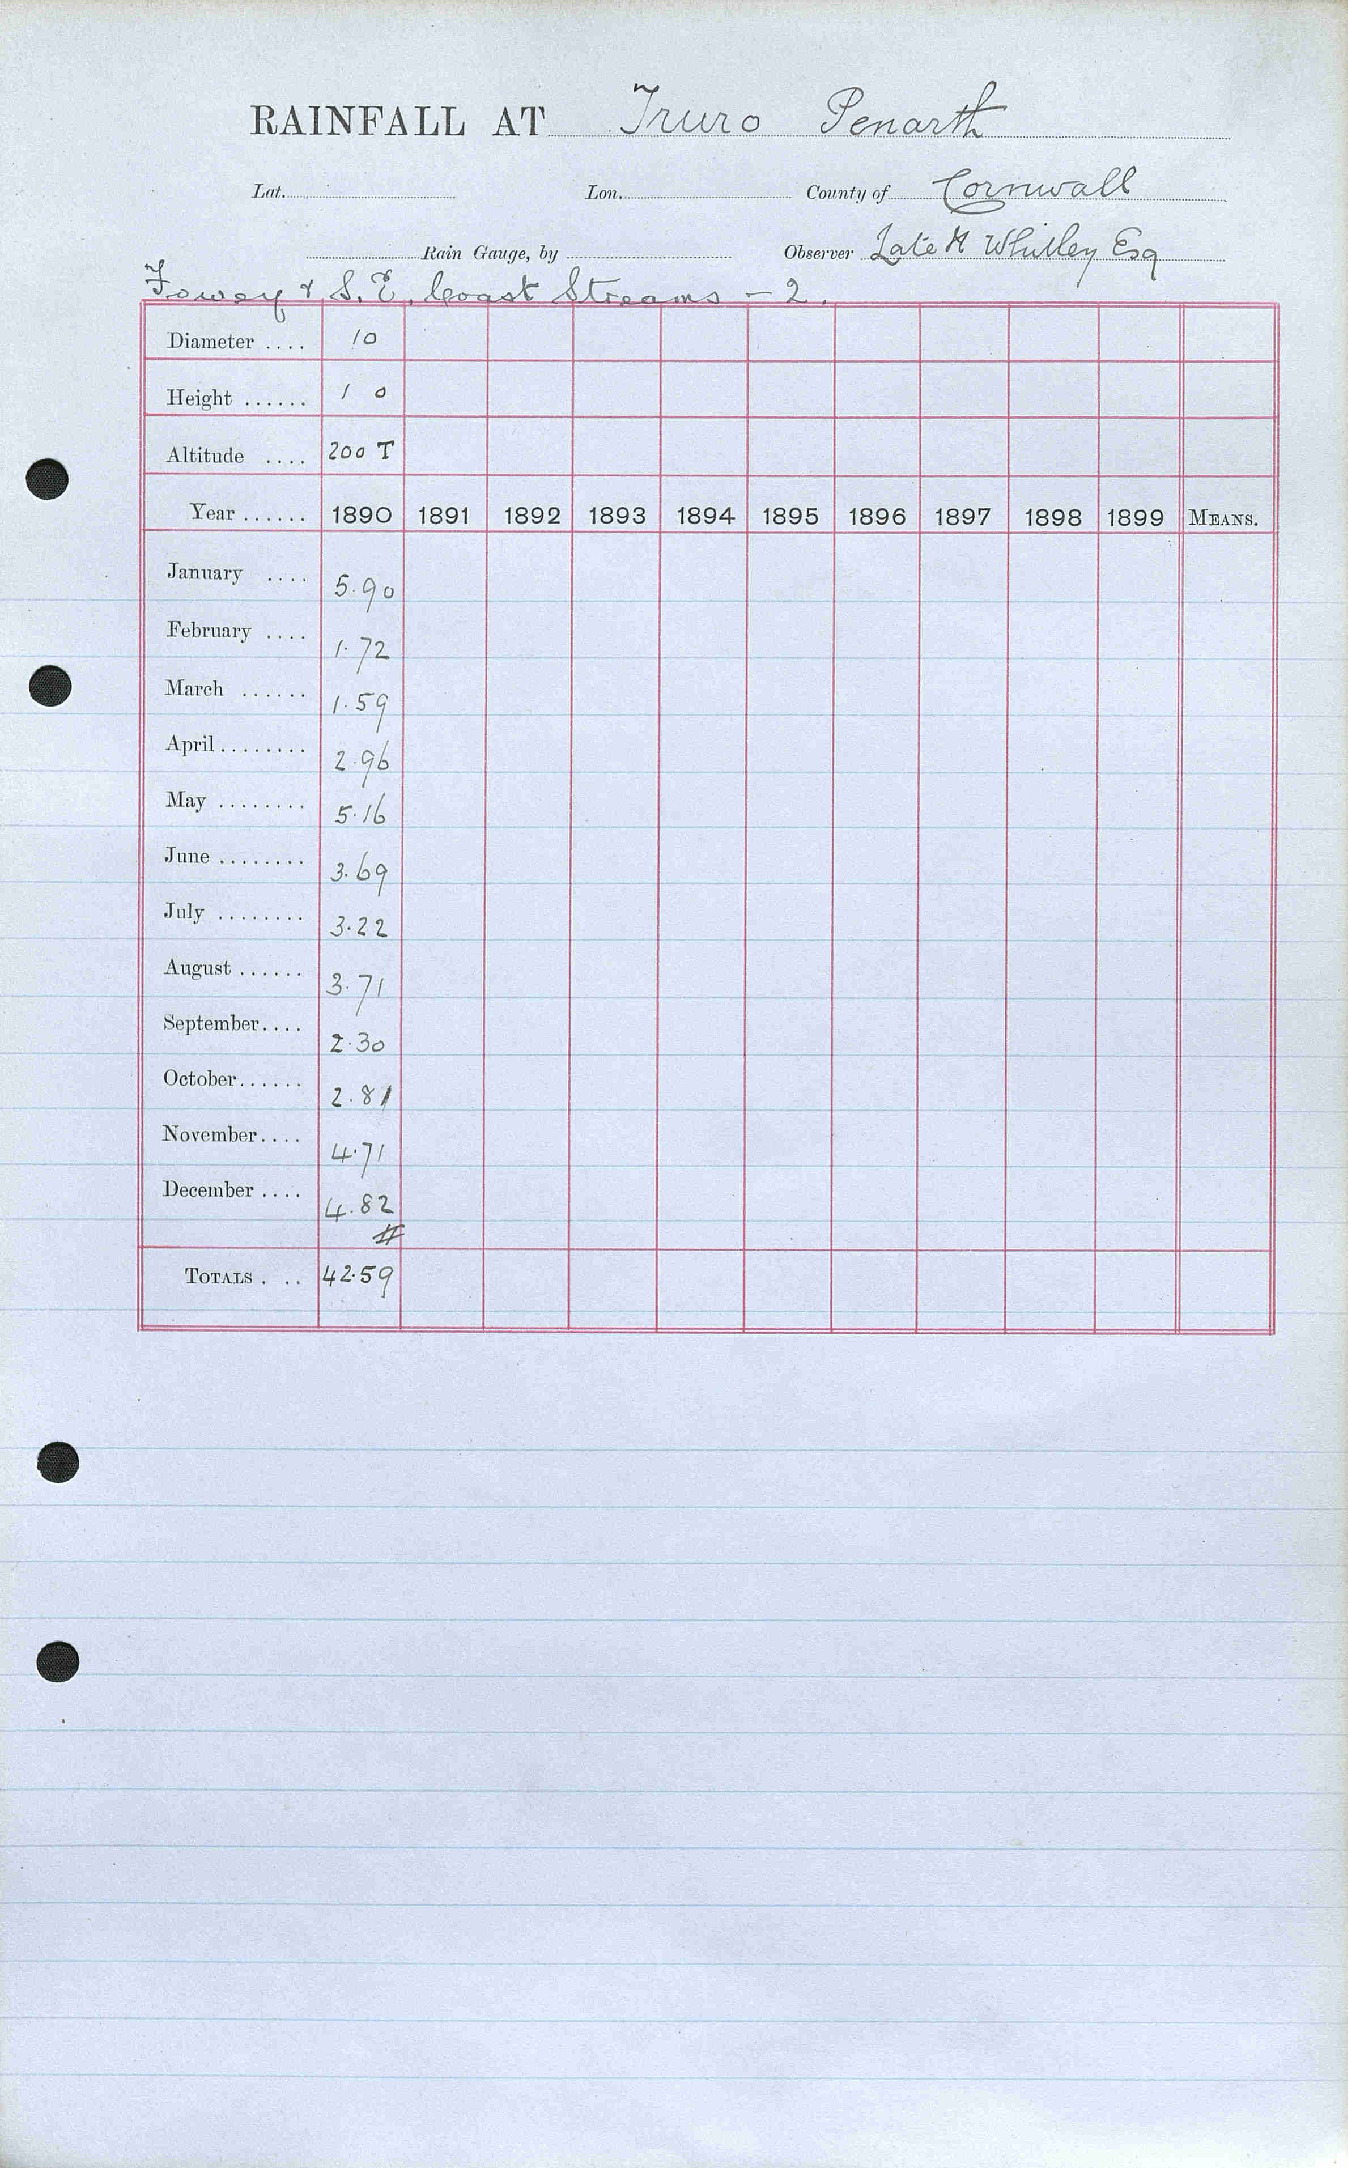 RAINFALL AT Truro Penarth
Lat. Lon. County of Cornwall
Rain Gauge, by Observer Late H Whitley Esq
Fowey & S. E. Coast Streams - 2.
Diameter .... 10
Height ...... 1 0
Altitude .... 200 T
Year ...... 1890 1891 1892 1893 1894 1895 1896 1897 1898 1899 MEANS.
January .... 5.90
February .... 1.72
March ...... 1.59
April ........ 2.96
May ........ 5.16
June ........ 3.69
July ........ 3.22
August ...... 3.71
September.... 2.30
October...... 2.81
November.... 4.71
December .... 4.82
#
TOTALS . .. 42.59